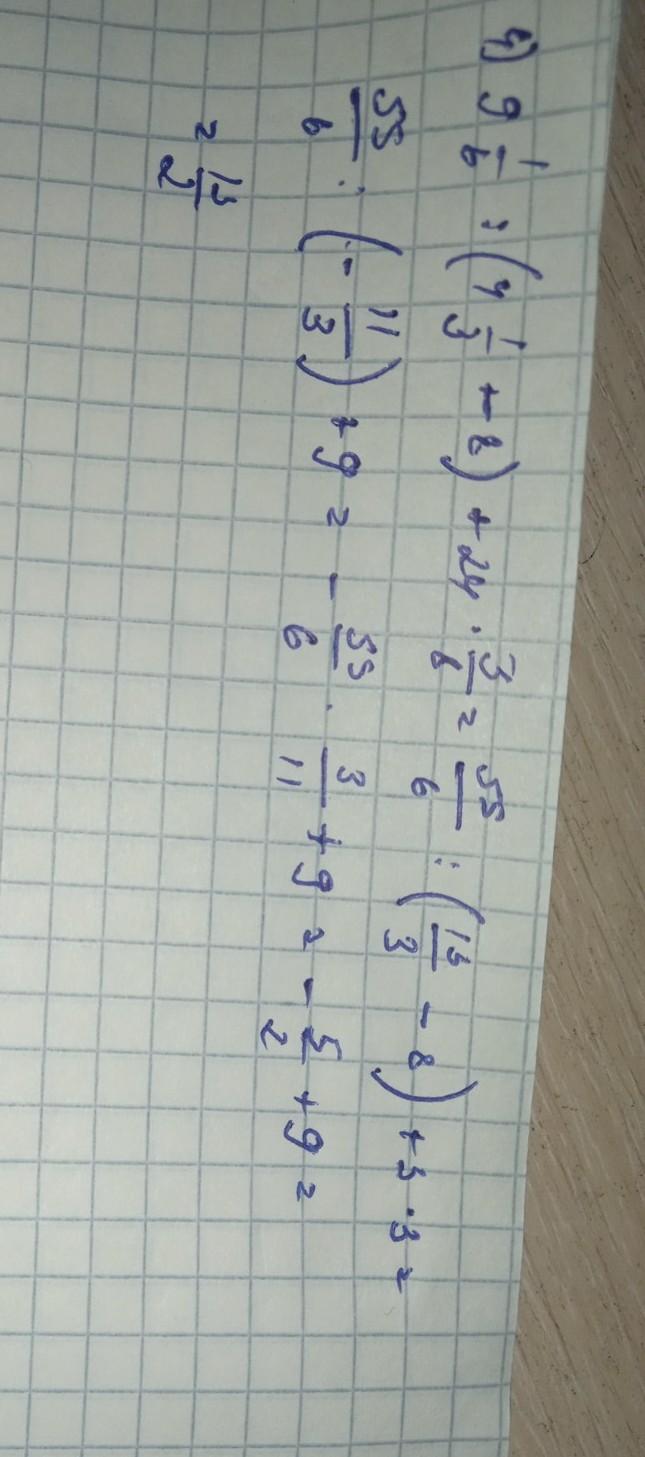 4) 9 1/6 : (4 1/3 - 8) + 24 · 3/8 = 55/6 : (13/3 - 8) + 3 · 3 =
55/6 : (- 11/3) + 9 = - 55/6 · 3/11 + 9 = - 5/2 + 9 =
= 13/2